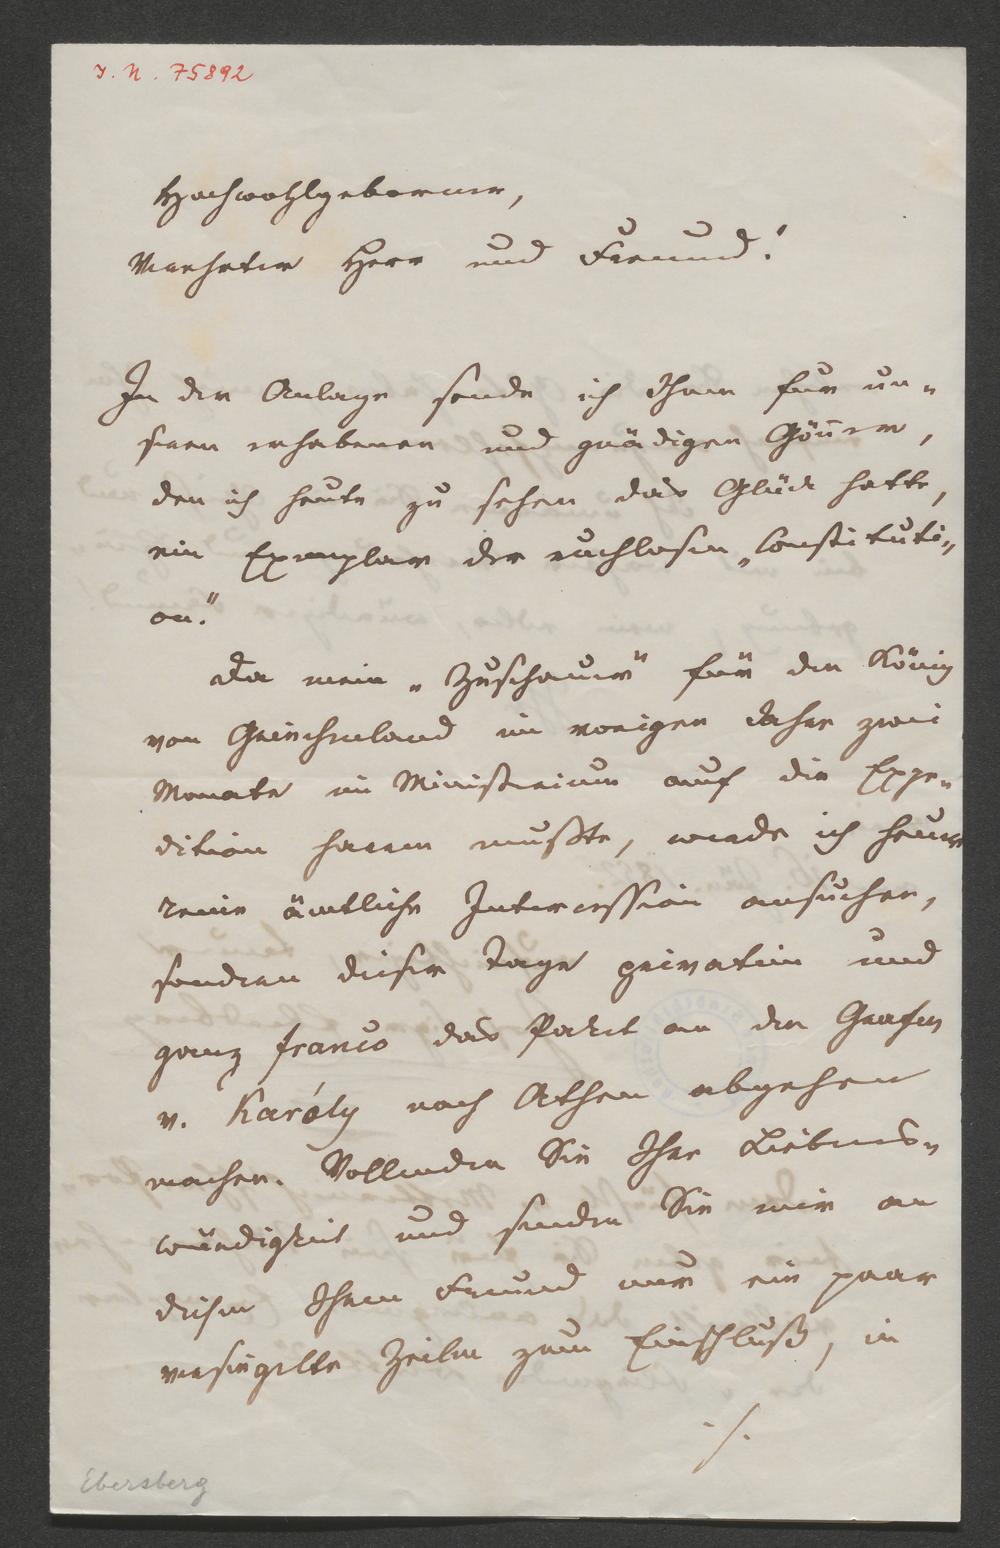 I. N. 75892
Hochwohlgeborner,
Verehrter Herr und Freund!
In der Anlage sende ich Ihnen für un-
seren erhabenen und gnädigen Gönner,
den ich heute zu sehen das Glück hatte,
ein Exemplar der ruchlosen „Constituti-
on“.
Da mein „Zuschauer“ für den König
von Griechenland im vorigen Jahre zwei
Monate im Ministerium auf die Expe-
dition harren mußte, werde ich heuer
keine ämtliche Intercession ansuchen,
sondern dieser Tage privatim und
ganz franco das Paket an den Grafen
v. Karóly nach Athen abgehen
machen. Vollenden Sie Ihre Liebens-
würdigkeit und senden Sie mir an
diesen Ihren Freund nur ein paar
versiegelte Zeilen zum Einschluß, in
./.
Ebersberg